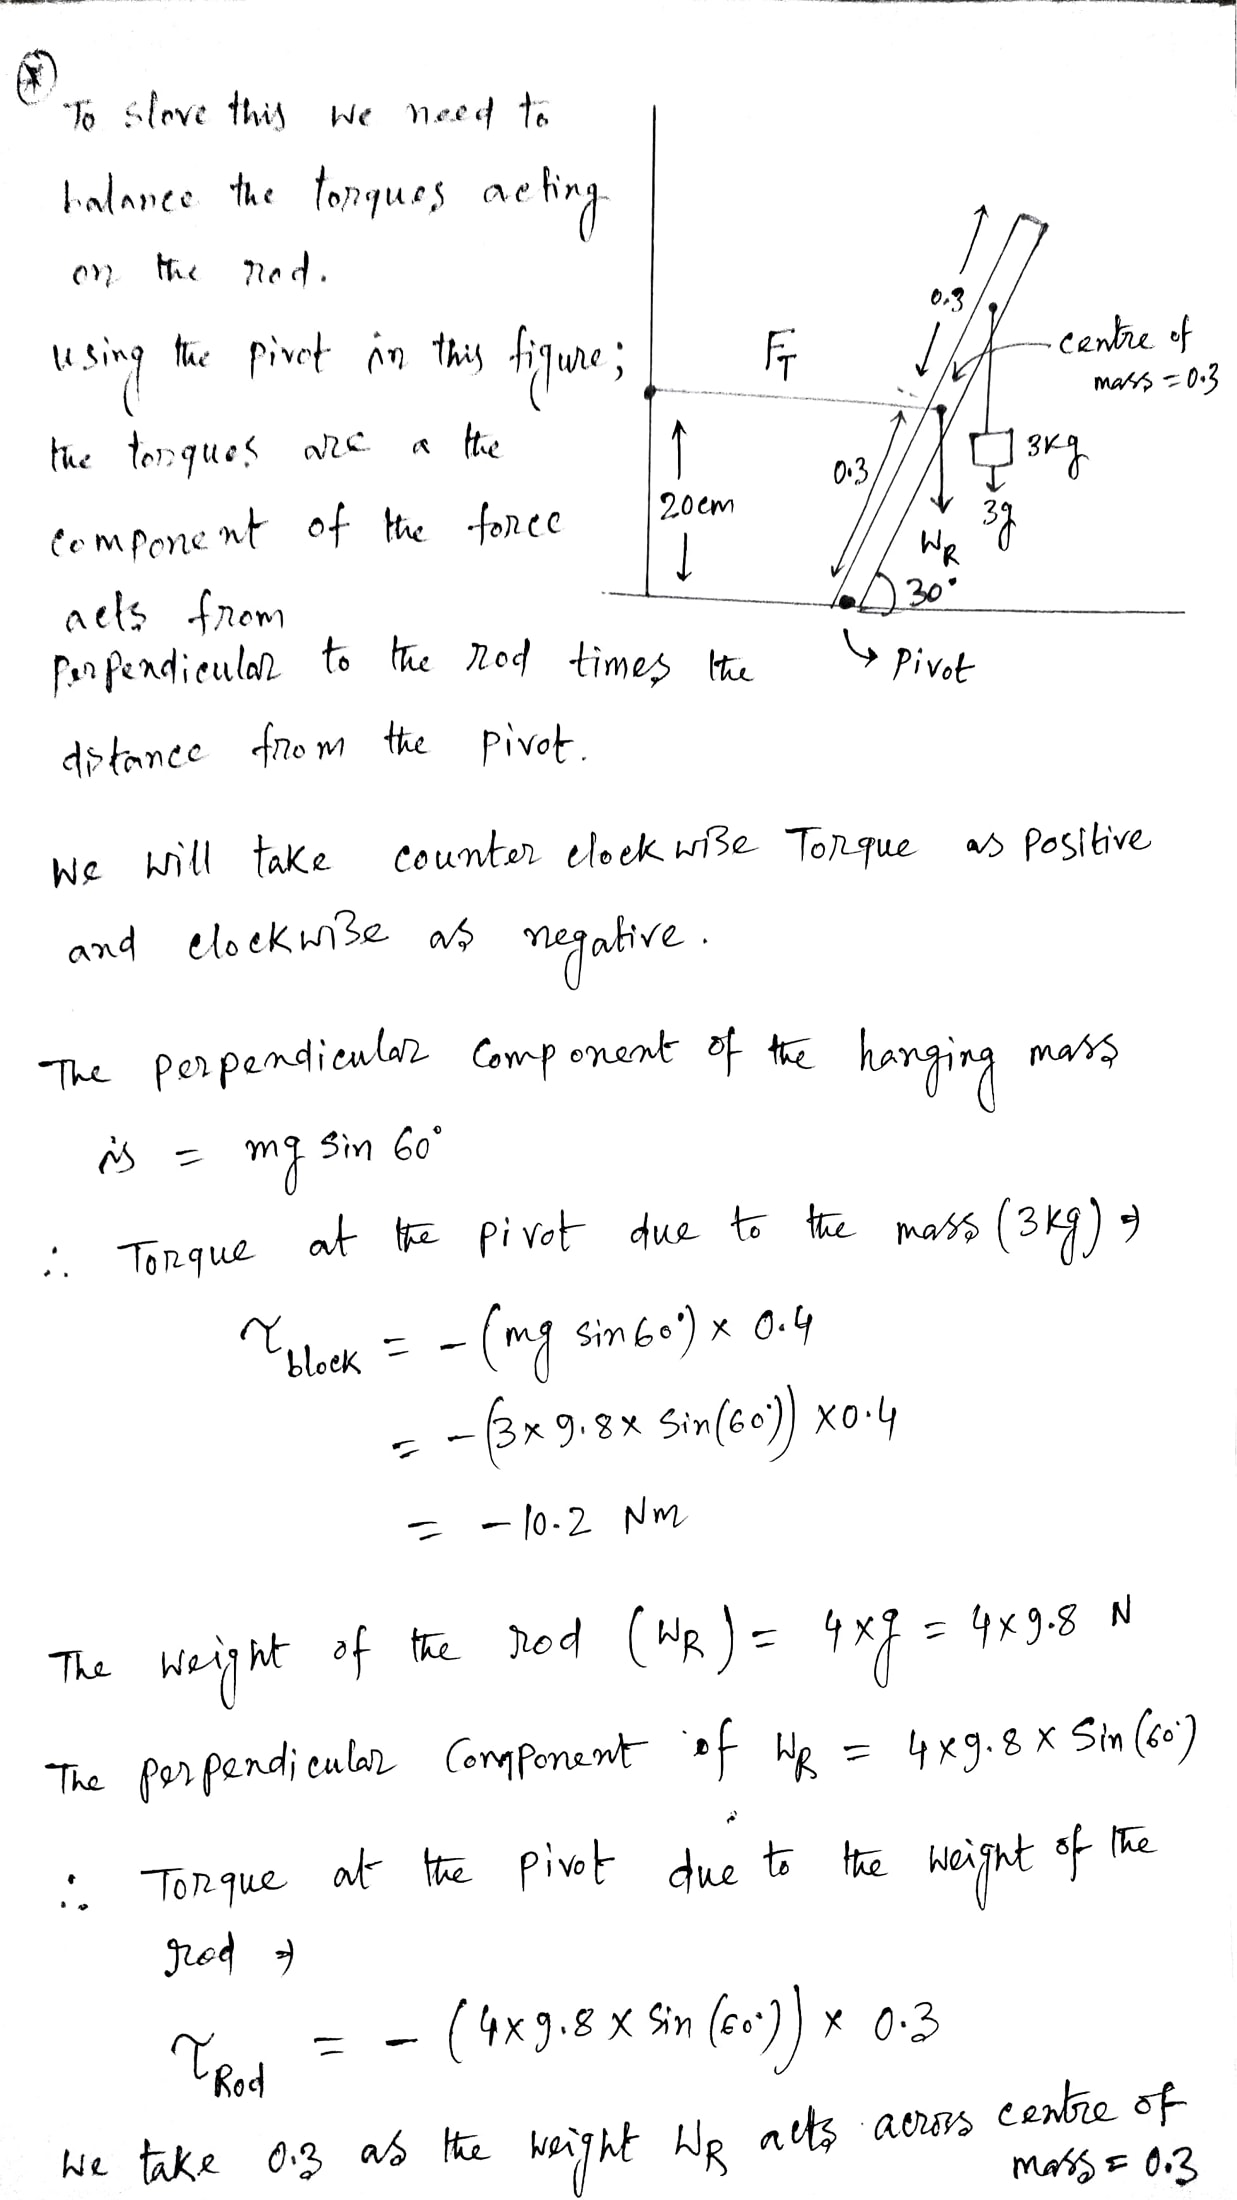 To slove this we need to
balance the torques acting
on the rod.
using the pivot in this figure;
the torques are a the
component of the force
acts from
perpendicular to the rod times the
distance from the pivot.
F_T
20cm
0.3
0.3
centre of
mass = 0.3
3kg
3g
W_R
30°
↳ Pivot
We will take counter clockwise Torque as positive
and clockwise as negative.
The perpendicular component of the hanging mass
is = mg sin 60°
∴ Torque at the pivot due to the mass (3kg) ⇒
τ_block = - (mg sin 60°) × 0.4
= - (3 × 9.8 × sin(60°)) × 0.4
= - 10.2 Nm
The weight of the rod (W_R) = 4 × g = 4 × 9.8 N
The perpendicular component of W_R = 4 × 9.8 × Sin (60°)
∴ Torque at the pivot due to the weight of the
rod ⇒
τ_Rod = - (4 × 9.8 × Sin (60°)) × 0.3
We take 0.3 as the weight W_R acts across centre of
mass = 0.3